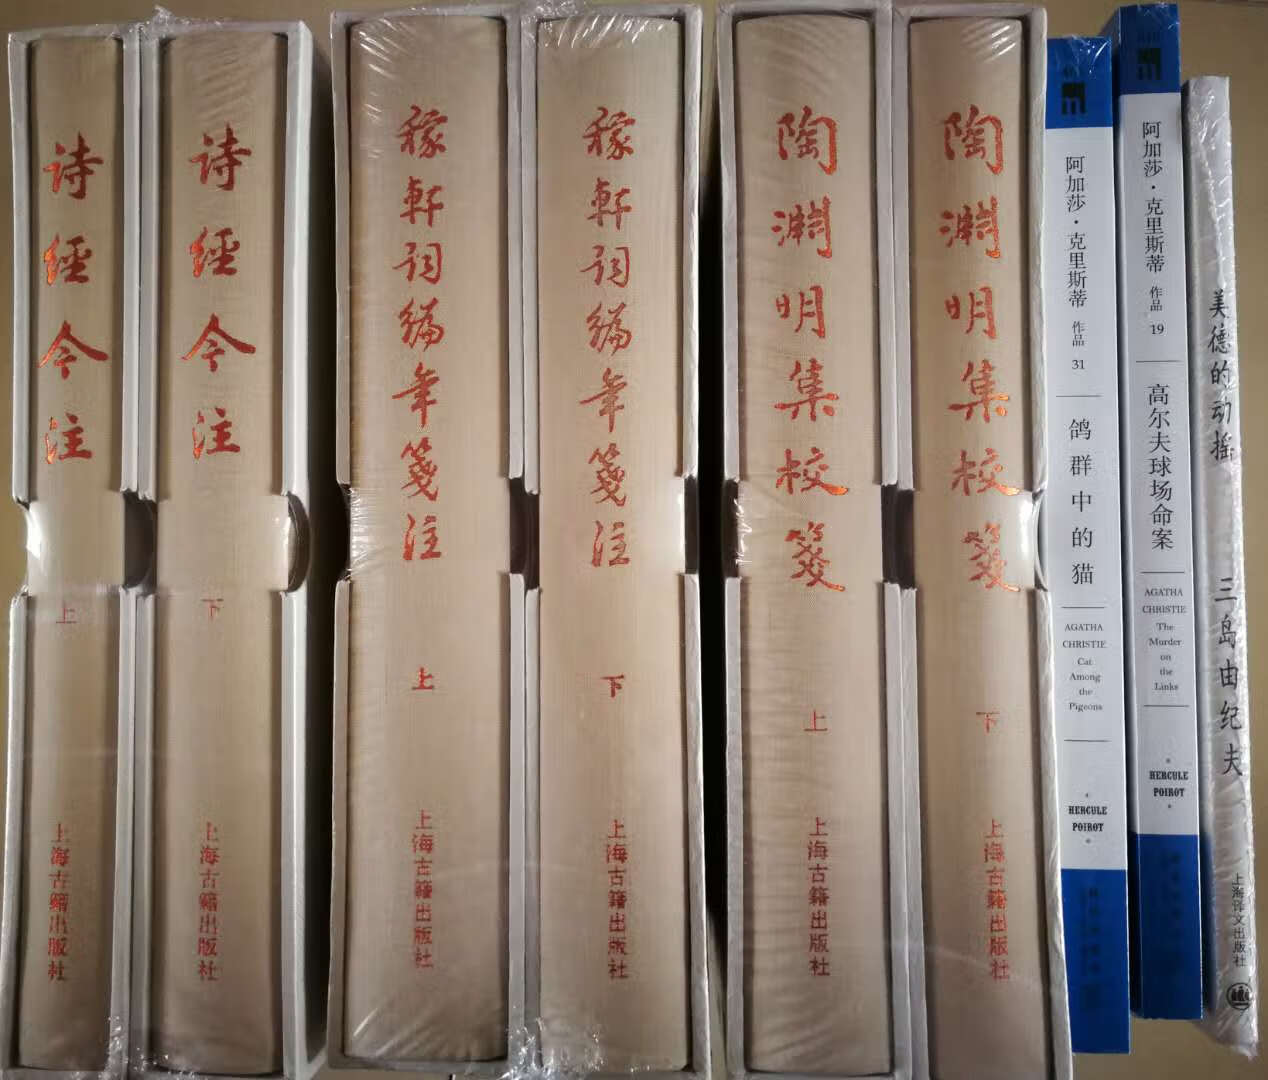 诗经今注
上
上海古籍出版社
诗经今注
下
上海古籍出版社
稼轩词编年笺注
上
上海古籍出版社
稼轩词编年笺注
下
上海古籍出版社
陶渊明集校笺
上
上海古籍出版社
陶渊明集校笺
下
上海古籍出版社
阿加莎·克里斯蒂
作品
31
鸽群中的猫
AGATHA
CHRISTIE
Cat
Among
the
Pigeons
HERCULE
POIROT
阿加莎·克里斯蒂
作品
19
高尔夫球场命案
AGATHA
CHRISTIE
The
Murder
on
the
Links
HERCULE
POIROT
美德的动摇
三岛由纪夫
上海译文出版社